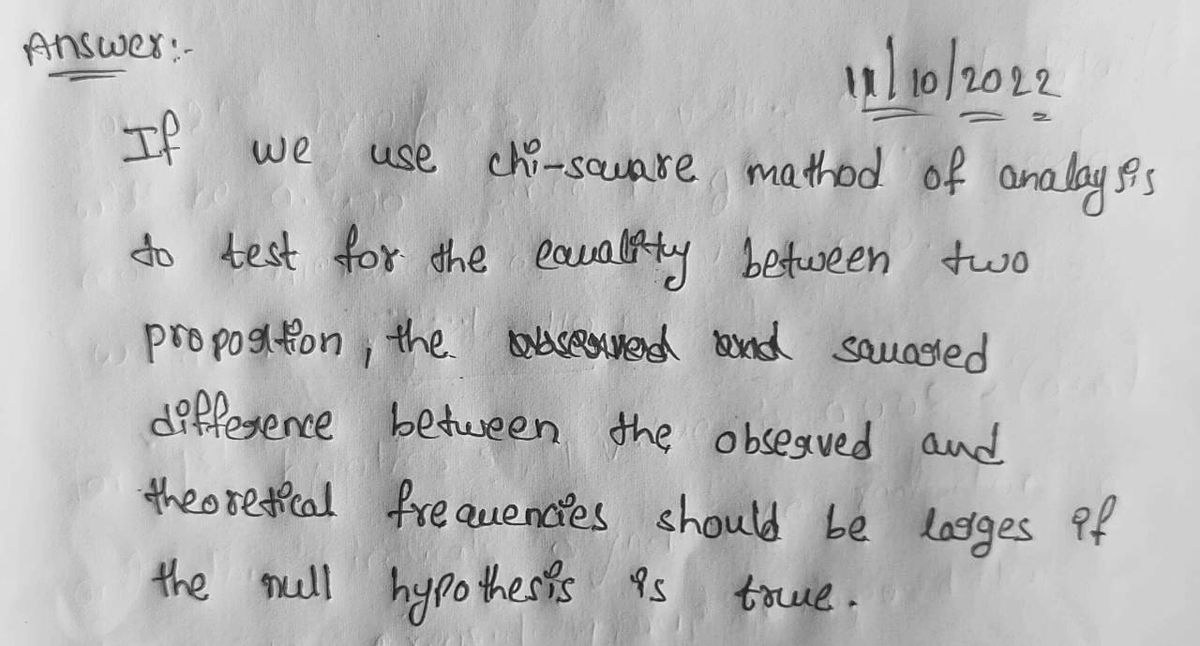 Answer:-
11/10/2022
If we use chi-sauare mathod of analaysis
to test for the eaualitty between two
propogition, the and sauared
difference between the observed and
theoretical freauencies should be larges if
the null hypothesis is true.